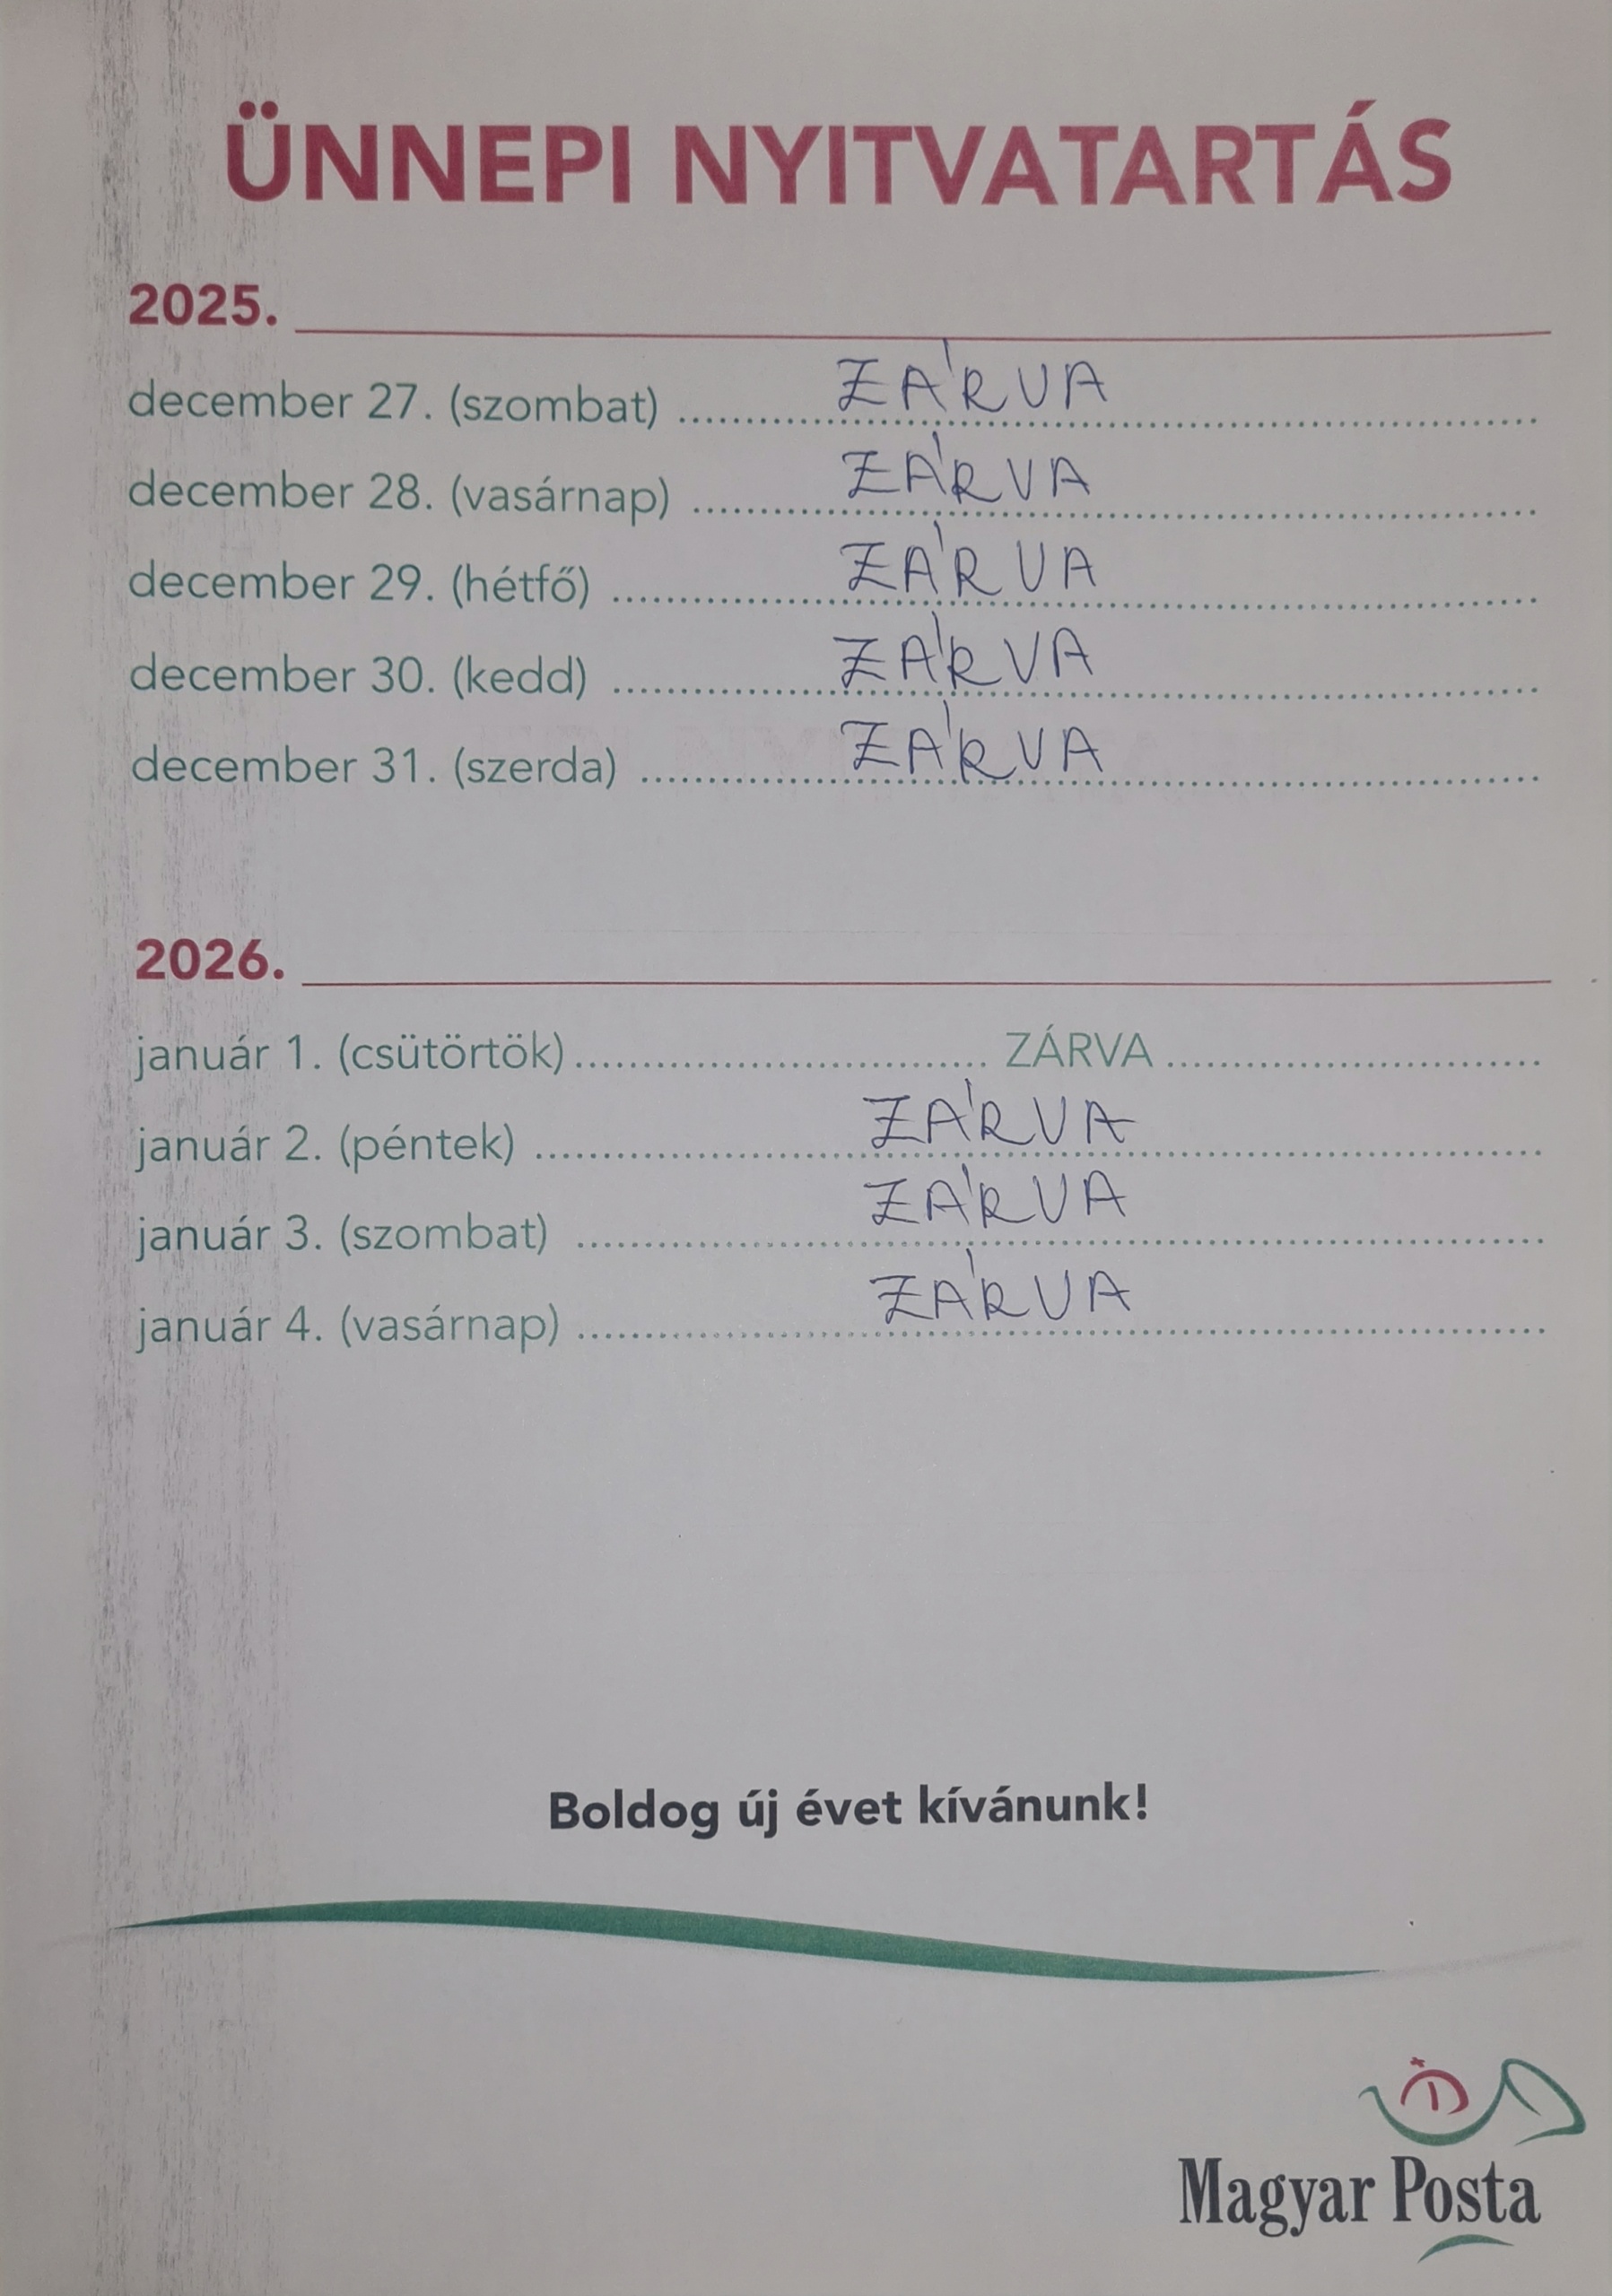 ÜNNEPI NYITVATARTÁS
2025.
december 27. (szombat) ZÁRVA
december 28. (vasárnap) ZÁRVA
december 29. (hétfő) ZÁRVA
december 30. (kedd) ZÁRVA
december 31. (szerda) ZÁRVA
2026.
január 1. (csütörtök) ZÁRVA
január 2. (péntek) ZÁRVA
január 3. (szombat) ZÁRVA
január 4. (vasárnap) ZÁRVA
Boldog új évet kívánunk!
Magyar Posta